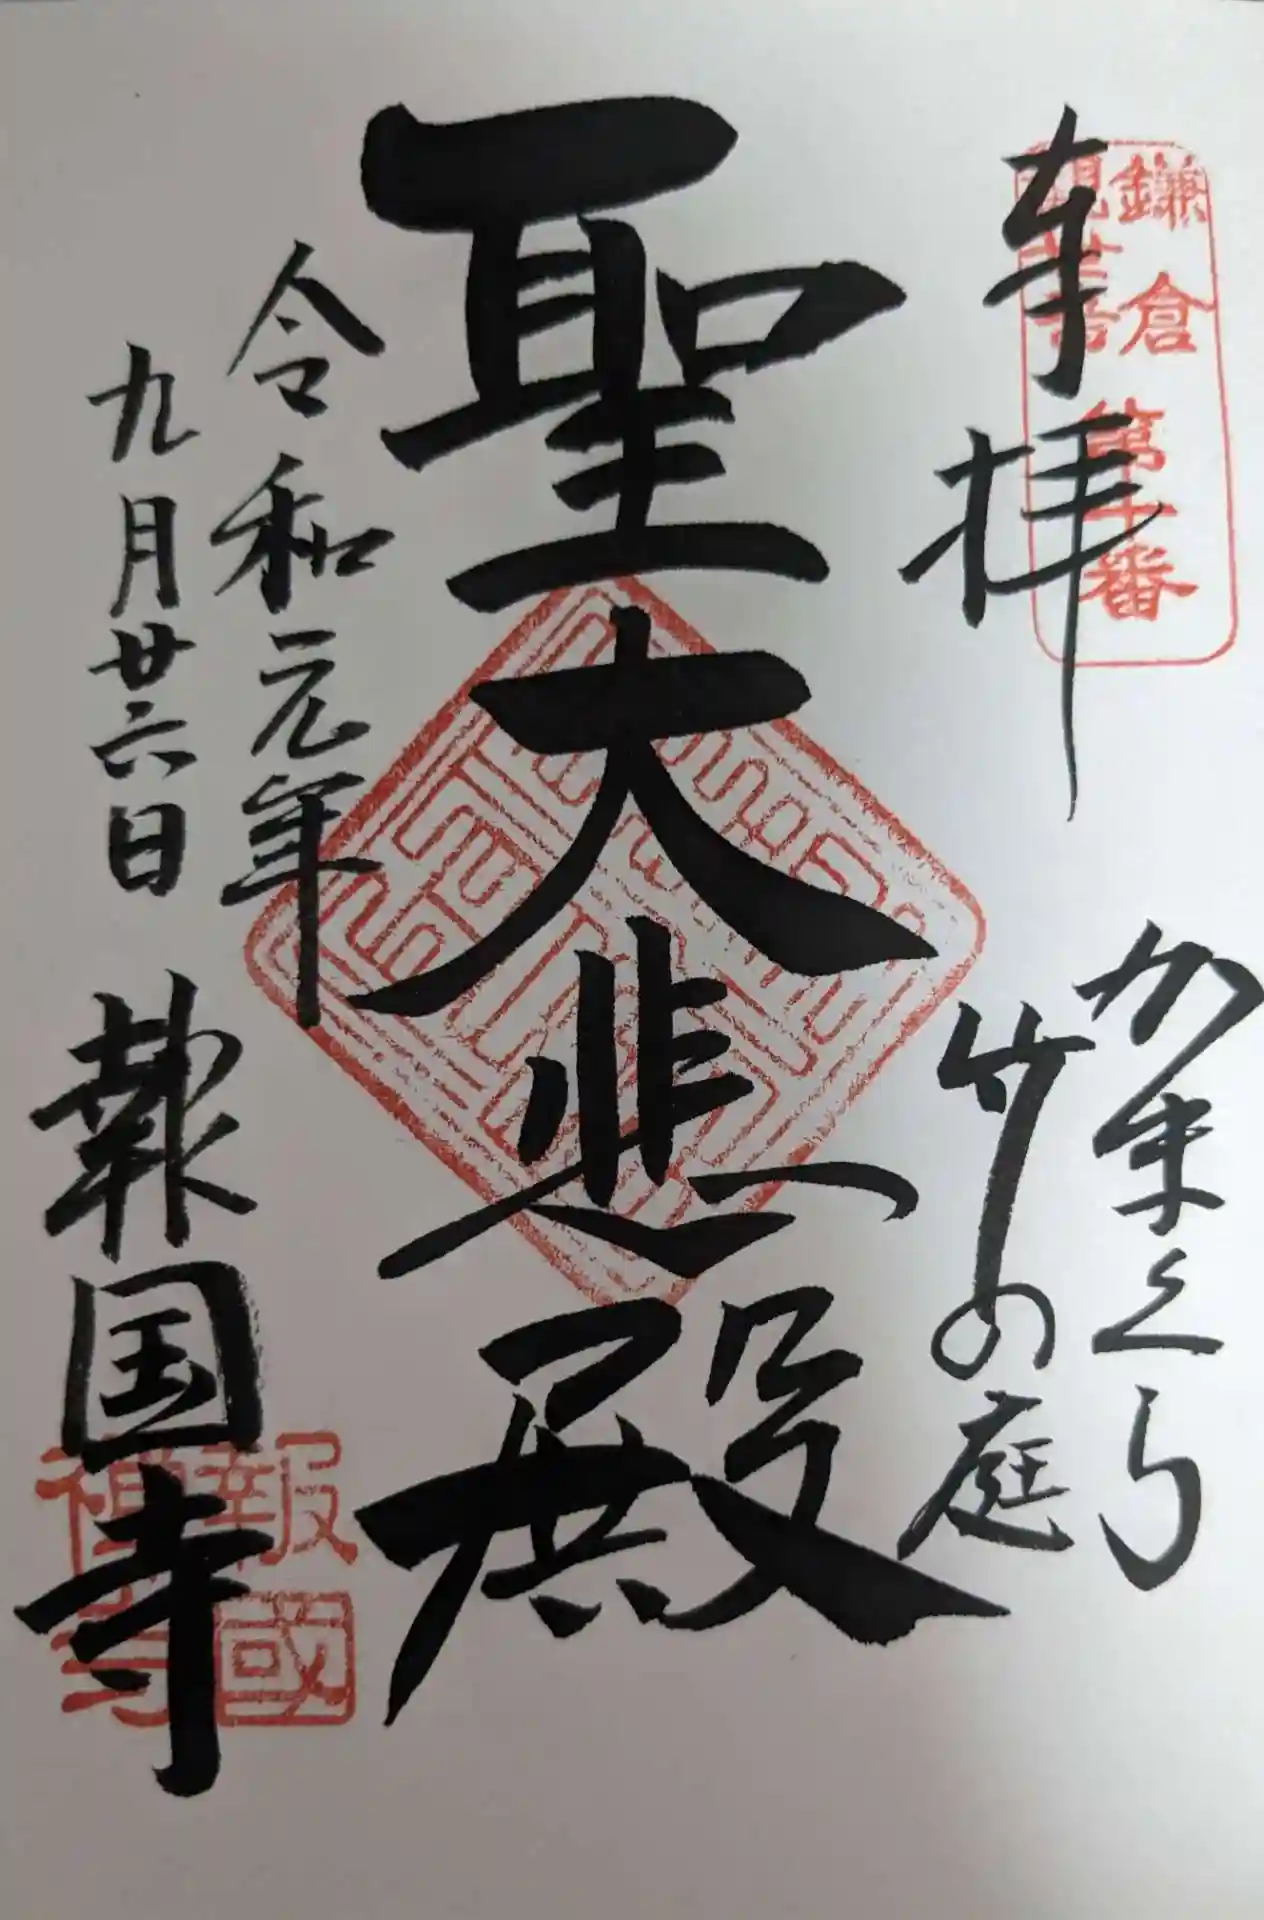 奉拝
鎌倉
観音
第十番
かまくら
竹の庭
聖大悲殿
令和元年
九月廿六日
報国寺
報國
禅寺